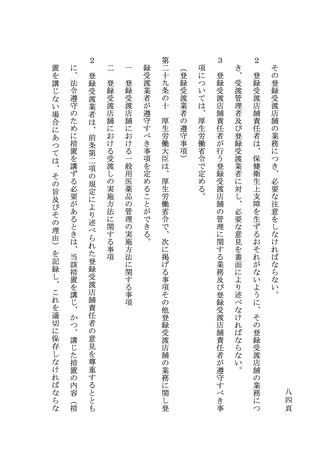 八四頁
その登録受渡店舗の業務につき、必要な注意をしなければならない。
２　登録受渡店舗責任者は、保健衛生上支障を生ずるおそれがないように、その登録受渡店舗の業務につ
き、受渡管理者及び登録受渡業者に対し、必要な意見を書面により述べなければならない。
３　登録受渡店舗責任者が行う登録受渡店舗の管理に関する業務及び登録受渡店舗責任者が遵守すべき事
項については、厚生労働省令で定める。
（登録受渡業者の遵守事項）
第二十九条の十　厚生労働大臣は、厚生労働省令で、次に掲げる事項その他登録受渡店舗の業務に関し登
録受渡業者が遵守すべき事項を定めることができる。
一　登録受渡店舗における一般用医薬品の管理の実施方法に関する事項
二　登録受渡店舗における受渡しの実施方法に関する事項
２　登録受渡業者は、前条第二項の規定により述べられた登録受渡店舗責任者の意見を尊重するととも
に、法令遵守のために措置を講ずる必要があるときは、当該措置を講じ、かつ、講じた措置の内容（措
置を講じない場合にあつては、その旨及びその理由）を記録し、これを適切に保存しなければならな